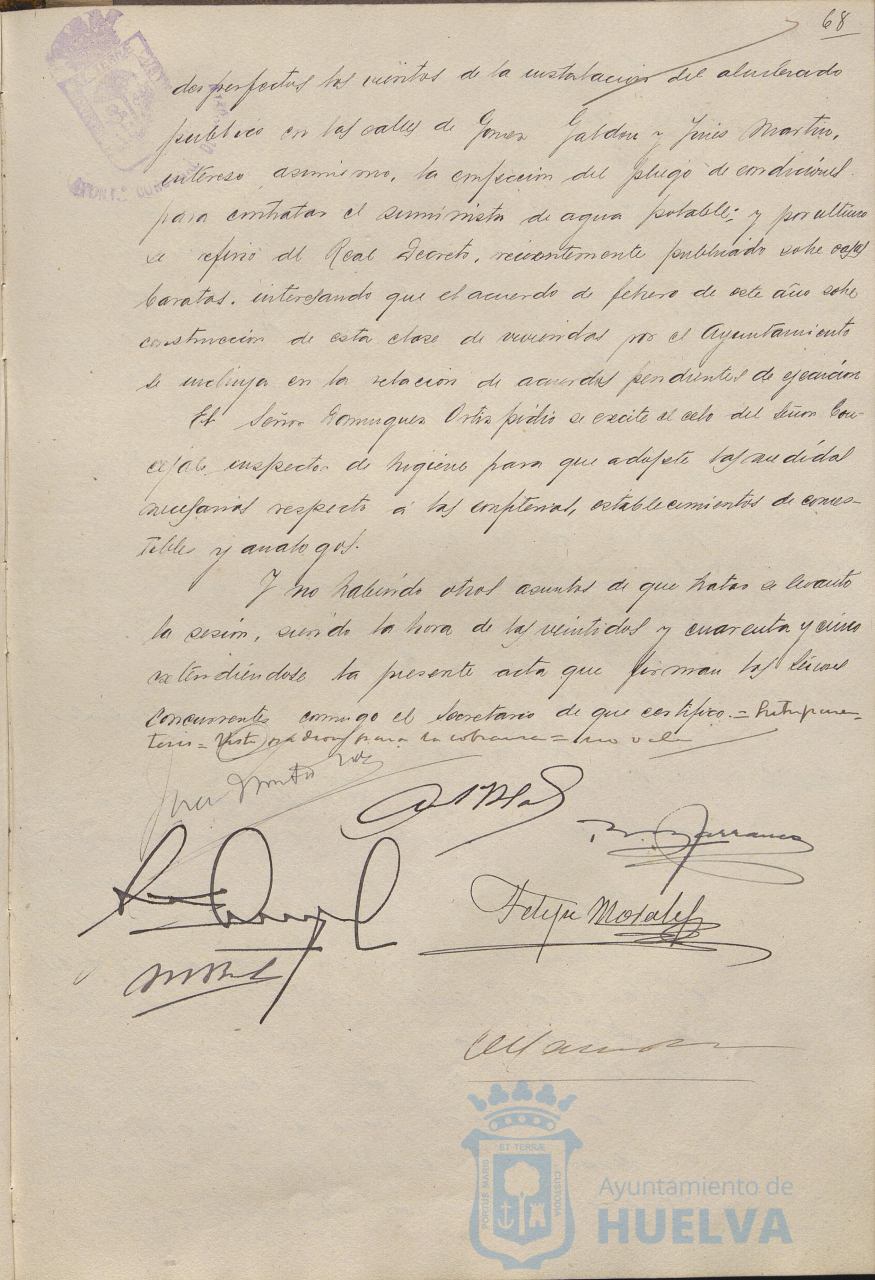 68
desperfectos los vientos de la instalación del alumbrado
publico en las calles de Gomez Galdon y Ginés Martin,
intereso asimismo, la confección del pliego de condiciones
para contratar el suministro de agua potable; y por ultimo
se refirió al Real Decreto, recientemente publicado sobre casas
baratas, interesando que el acuerdo de febrero de este año sobre
construcción de esta clase de viviendas por el Ayuntamiento
se incluya en la relación de acuerdos pendientes de ejecución
El Señor Dominguez Ortiz pidió se excite el celo del Señor Con-
cejal inspector de higiene para que adopte las medidas
necesarias respecto á las confiterias, establecimientos de comes-
tibles y analogos.
Y no habiendo otros asuntos de que tratar se levantó
la sesión, siendo la hora de las veintidos y cuarenta y cinco
extendiéndose la presente acta que firman los Señores
Concurrentes conmigo el Secretario de que certifico. = Entrepare-
tesis = padron para la cobranza = no vale
Barranco
Felipe Morales
ET TERRÆ
PORTUS MARIS
CUSTODIA
Ayuntamiento de
HUELVA